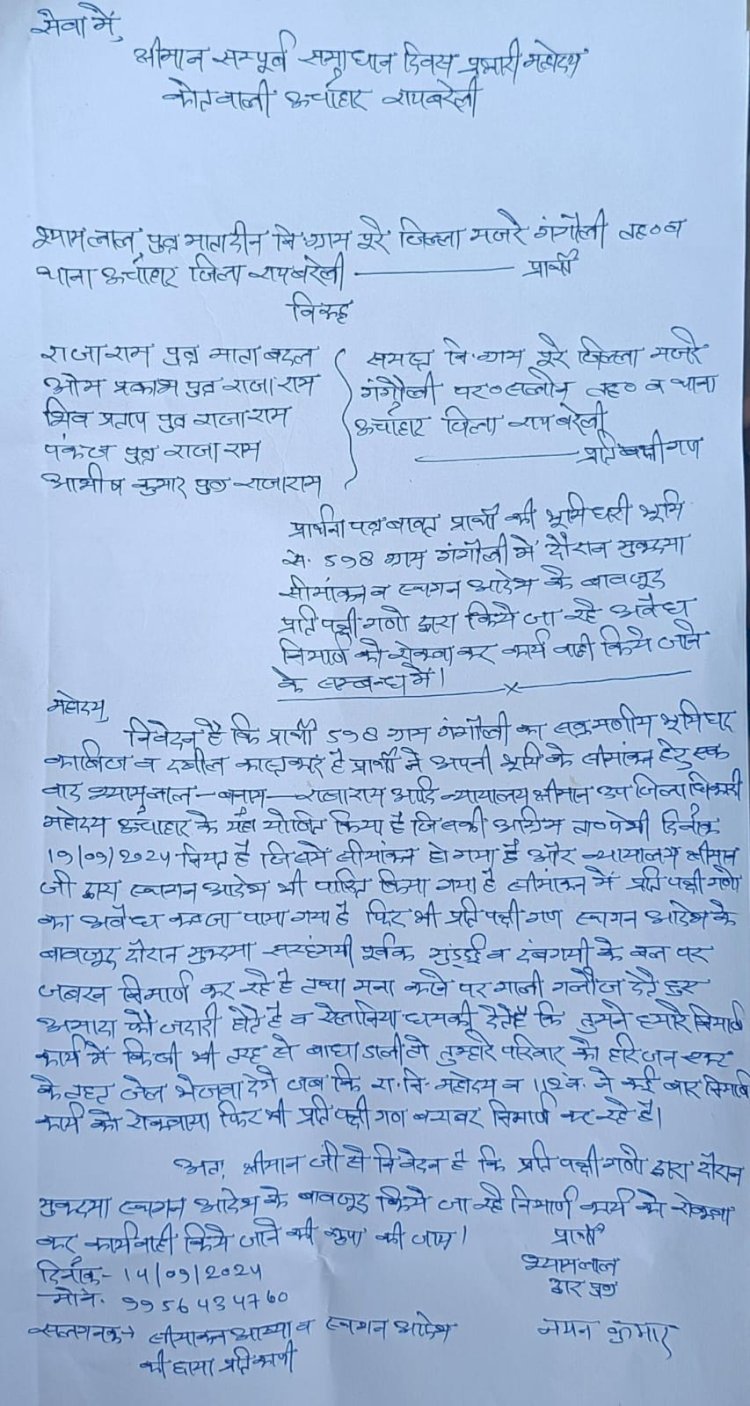 सेवा में,
श्रीमान सम्पूर्ण समाधान दिवस प्रभारी महोदय
कोतवाली ऊँचाहार रायबरेली
श्यामलाल पुत्र मातादीन नि० ग्राम पूरे जिल्ला मजरे गंगौली तह० व
थाना ऊँचाहार जिला रायबरेली ——— प्रार्थी
विरुद्ध
राजाराम पुत्र माता बदल
ओम प्रकाश पुत्र राजाराम
शिव प्रताप पुत्र राजाराम
पंकज पुत्र राजा राम
आशीष कुमार पुत्र राजाराम
समस्त नि० ग्राम पूरे जिल्ला मजरे
गंगौली पर० सलोन तह० व थाना
ऊँचाहार जिला रायबरेली
——— प्रतिपक्षीगण
प्रार्थना पत्र बावत प्रार्थी की भूमिधरी भूमि
स. 598 ग्राम गंगौली में दौरान मुकदमा
सीमांकन व स्थगन आदेश के बावजूद
प्रतिपक्षी गणो द्वारा किये जा रहे अवैध
निर्माण को रोकवा कर कार्यवाही किये जाने
के सम्बन्ध में।
महोदय,
निवेदन है कि प्रार्थी 598 ग्राम गंगौली का संक्रमणीय भूमिधर
काबिज व दखील काश्तकार है प्रार्थी ने अपनी भूमि के सीमांकन हेतु एक
वाद श्यामलाल - बनाम - राजाराम आदि न्यायालय श्रीमान उप जिलाधिकारी
महोदय ऊँचाहार के यहाँ योजित किया है जिसकी अग्रिम ता० पेशी दिनांक
19/09/2024 नियत है जिसमें सीमांकन हो गया है और न्यायालय श्रीमान
जी द्वारा स्थगन आदेश भी पारित किया गया है सीमांकन में प्रतिपक्षी गणो
का अवैध कब्जा पाया गया है फिर भी प्रतिपक्षी गण स्थगन आदेश के
बावजूद दौरान मुकदमा सरहंगयी पूर्वक गुंडई व दबंगयी के बल पर
जबरन निर्माण कर रहे है तथा मना करने पर गाली गलौज देते हुए
अमादा फौजदारी होते है व ऐलानिया धमकी देते है कि तुमने हमारे निर्माण
कार्य में किसी भी तरह से बाधा डाली तो तुम्हारे परिवार को हरिजन एक्ट
के तहत जेल भेजवा देंगे जब कि रा. नि. महोदय व 112 नं. ने कई बार निर्माण
कार्य को रोकवाया फिर भी प्रतिपक्षी गण बराबर निर्माण कर रहे है।
अतः श्रीमान जी से निवेदन है कि प्रतिपक्षी गणो द्वारा दौरान
मुकदमा स्थगन आदेश के बावजूद किये जा रहे निर्माण कार्य को रोकवा
कर कार्यवाही किये जाने की कृपा की जाय।
प्रार्थी
दिनाँक - 14/09/2024
श्यामलाल
मोने. 9956434760
द्वारा पुत्र
संलग्नक → सीमांकन आख्या व स्थगन आदेश
नयन कुमार
की छाया प्रति कापी